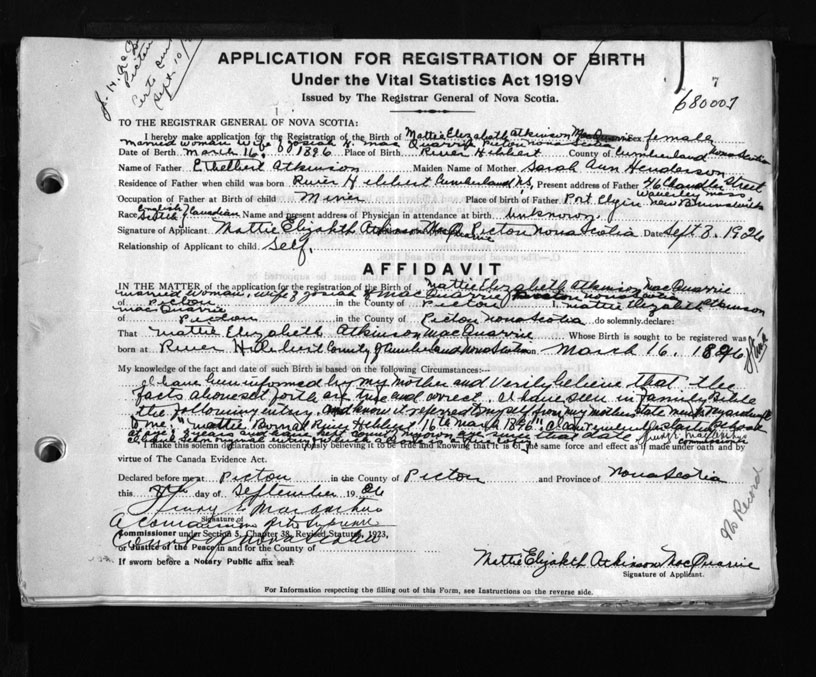 Certs
Sept. 10
APPLICATION FOR REGISTRATION OF BIRTH
Under the Vital Statistics Act 1919
7
Issued by The Registrar General of Nova Scotia.
680007
TO THE REGISTRAR GENERAL OF NOVA SCOTIA:
I hereby make application for the Registration of the Birth of Mattie Elizabeth Atkinson MacQuarrie Sex female
married woman wife of Josiah H. MacQuarrie Pictou Nova Scotia
Date of Birth March 16. 1896 Place of Birth River Hebbert County of Cumberland Nova Scotia
Name of Father Ethelbert Atkinson Maiden Name of Mother Sarah Ann Henderson
Residence of Father when child was born River Hebbert Cumberland N.S. Present address of Father 76 Chandler Street
Waverley Mass
Occupation of Father at Birth of child Miner Place of birth of Father Port Elgin New Brunswick
English
Race Scotch Canadian Name and present address of Physician in attendance at birth unknown.
Signature of Applicant Mattie Elizabeth Atkinson MacQuarrie Pictou Nova Scotia Date Sept 8. 1926
Relationship of Applicant to child. Self.
AFFIDAVIT
IN THE MATTER of the application for the registration of the Birth of Mattie Elizabeth Atkinson MacQuarrie
married woman, wife of Josiah H MacQuarrie Nova Scotia
of Pictou in the County of Pictou I, Mattie Elizabeth Atkinson
MacQuarrie
of Pictou in the County of Pictou Nova Scotia do solemnly declare:
That Mattie Elizabeth Atkinson MacQuarrie Whose Birth is sought to be registered was
born at River Hebbert County of Cumberland Nova Scotia on March 16. 1896
My knowledge of the fact and date of such Birth is based on the following Circumstances:
I have been informed by my mother and verily believe that the
facts above set forth are true and correct. I have seen in family Bible
the following entry, and know it refers to myself from my mothers
to me: "Mattie Born at River Hebbert 16th March 1896". I can remember starting school
at age of years and have kept count of my own age since that date
I make this solemn declaration conscientiously believing it to be true and knowing that it is of the same force and effect as if made under oath and by
virtue of The Canada Evidence Act.
Declared before me at Pictou in the County of Pictou and Province of Nova Scotia
this 8th day of September 1926
Signature of
A Commissioner of the Supreme
Commissioner under Section 5, Chapter 38, Revised Statutes, 1923,
Court of Nova Scotia
or Justice of the Peace in and for the County of
If sworn before a Notary Public affix seal.
No Record
Mattie Elizabeth Atkinson MacQuarrie
Signature of Applicant.
For Information respecting the filling out of this Form, see Instructions on the reverse side.